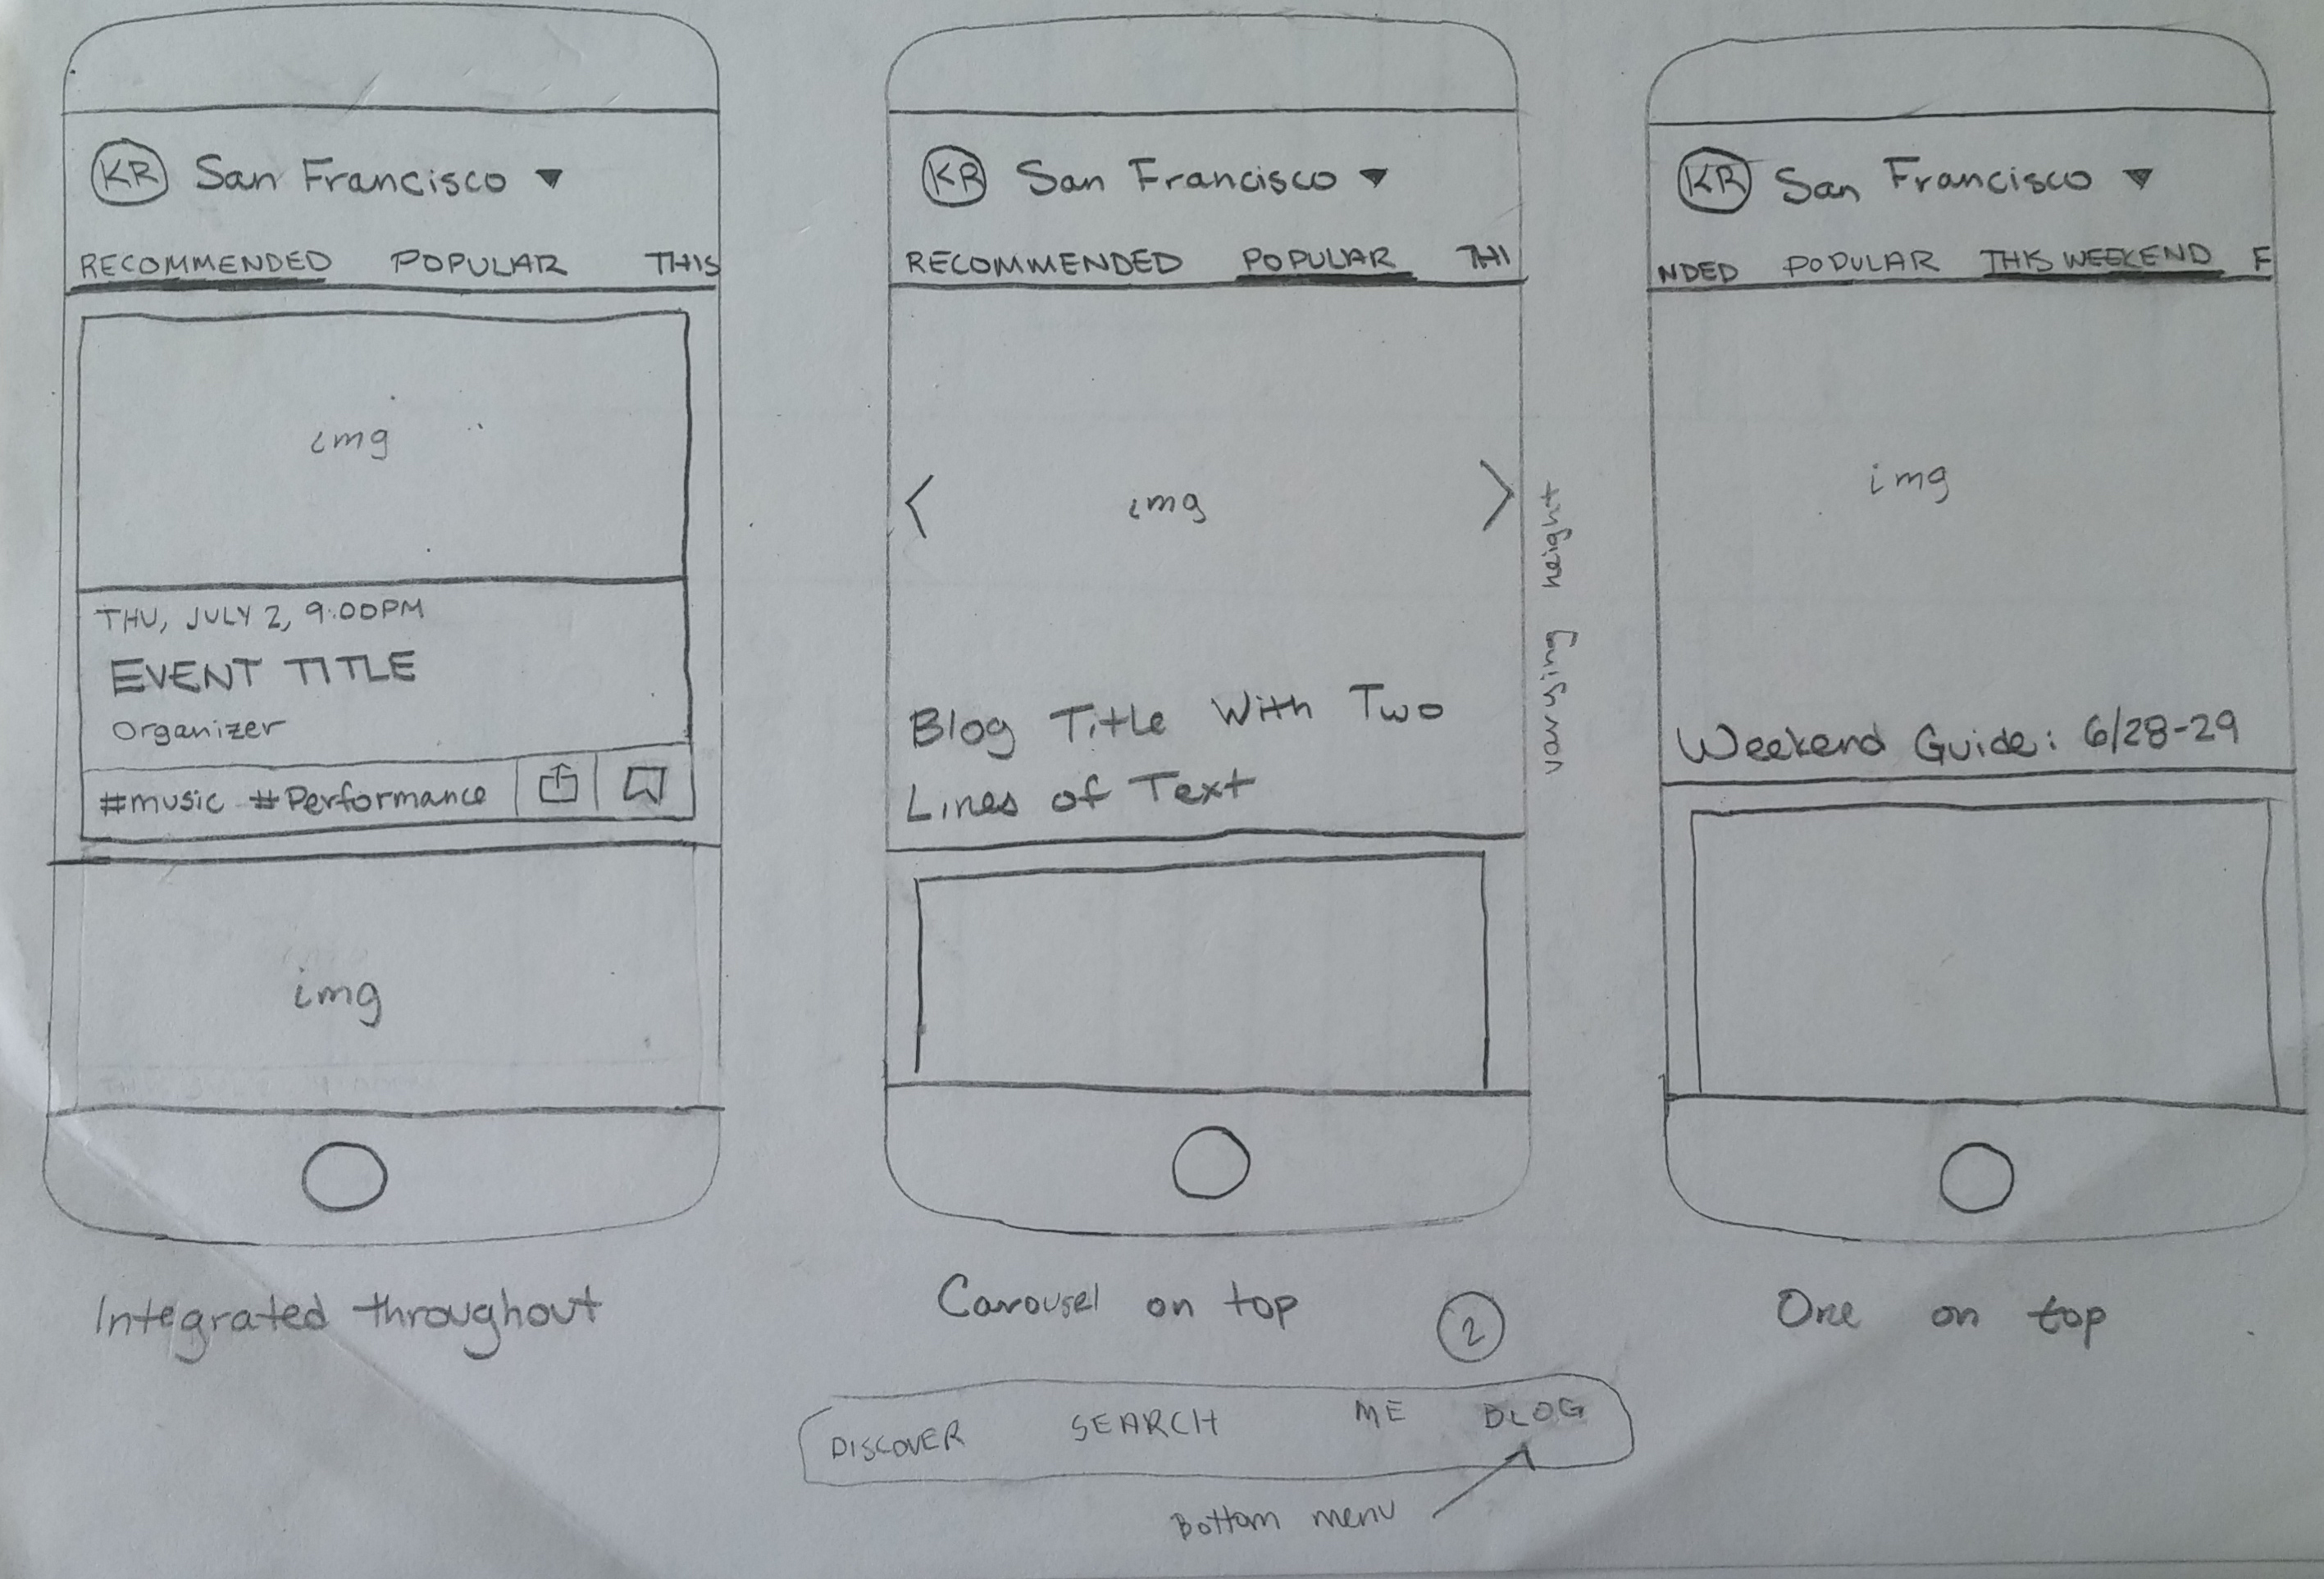 KR San Francisco
RECOMMENDED POPULAR THIS
img
THU, JULY 2, 9:00PM
EVENT TITLE
Organizer
#music #Performance
img
Integrated throughout
KR San Francisco
RECOMMENDED POPULAR THI
img
Blog Title With Two
Lines of Text
varying height
Carousel on top
2
KR San Francisco
NDED POPULAR THIS WEEKEND F
img
Weekend Guide: 6/28-29
One on top
DISCOVER SEARCH ME BLOG
Bottom menu